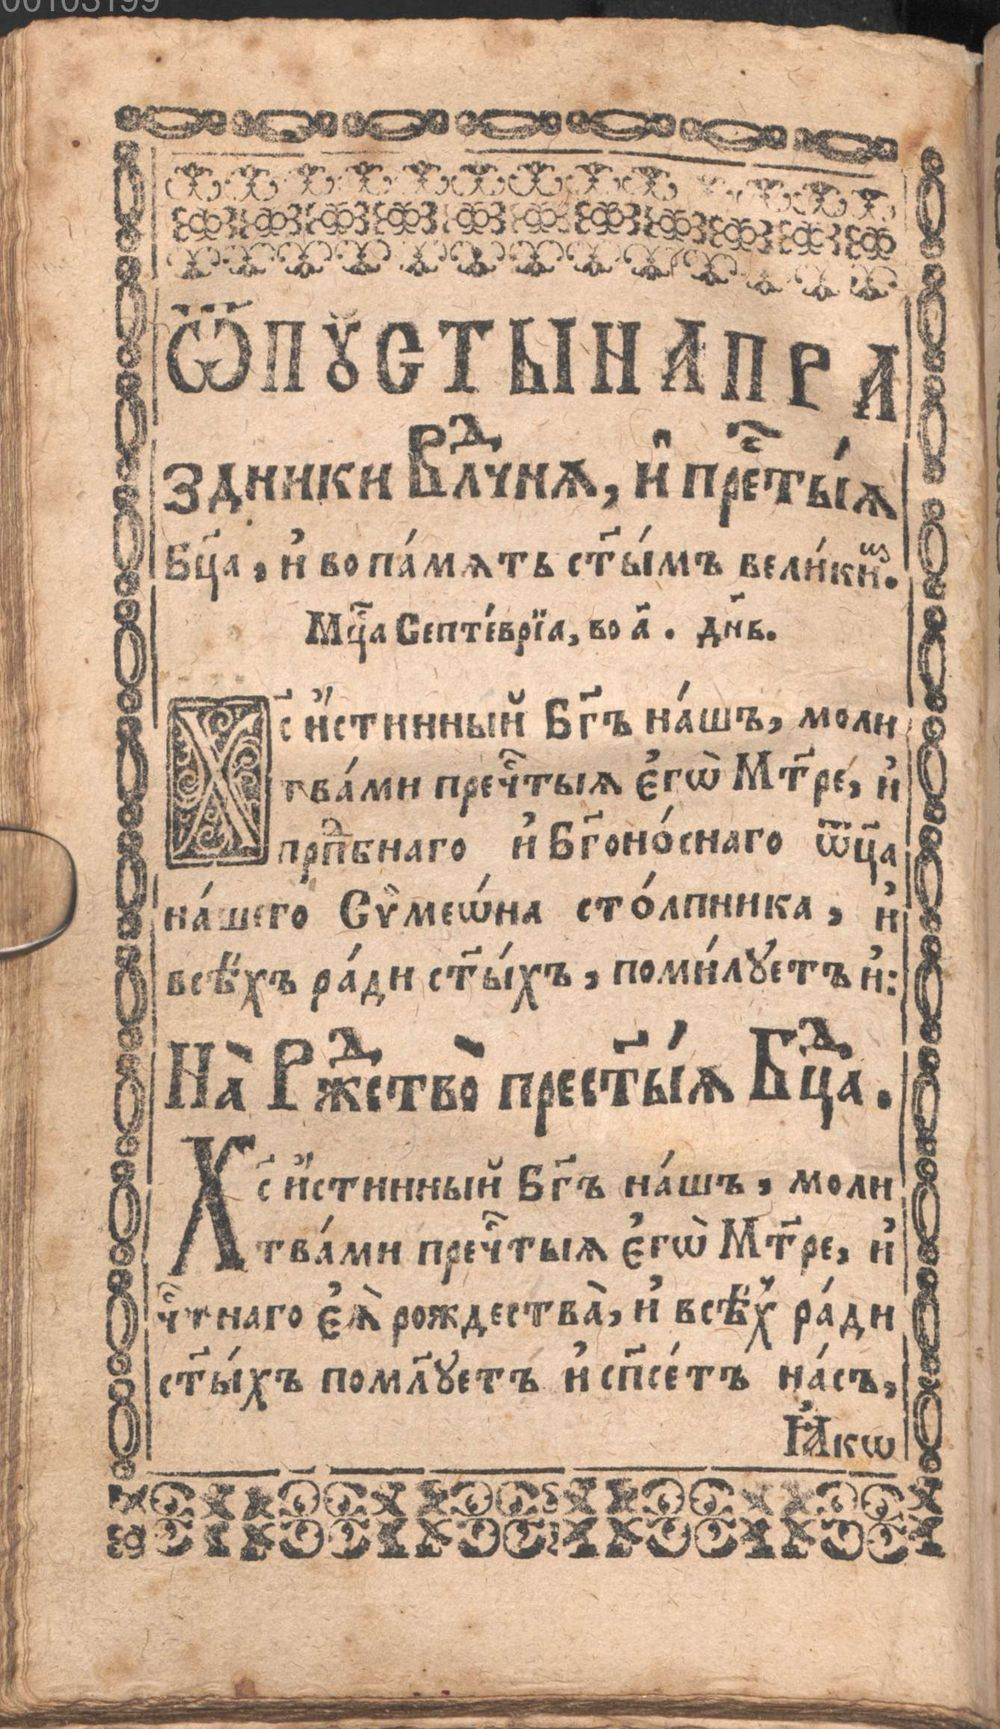 00103199
Ѿпꙋсты на пра
здники Влⷣчнѧ, и҆ прест҃ы́ѧ
Бц҃а, и҆ во па́мѧть ст҃ы́мъ вели́киⷨ.
Мцⷭ҇а Септе́врїа, во а҃. дн҃ь.
Хс҃ и҆́стинный Бг҃ъ на́шъ, моли
тва́ми пречⷭ҇тыѧ є҆гѡ̀ Мт҃ре, и҆
прпⷣбнаго и҆ Бг҃оно́снаго ѿц҃а
на́шего Сѷмеѡ́на сто́лпника, и҆
всѣ́хъ ра́ди ст҃ы́хъ, поми́лꙋетъ и҆:
На̀ Ржⷣество̀ прест҃ы́ѧ Бцⷣа.
Хс҃ и҆́стинный Бг҃ъ на́шъ, моли
тва́ми пречⷭ҇тыѧ є҆гѡ̀ Мт҃ре, и҆
чⷭ҇тнаго є҆ѧ̀ рождества̀, и҆ всѣ́х ра́ди
ст҃ы́хъ помл҃ꙋетъ и҆ сп҃се́тъ на́съ,
Ꙗ҆́кѡ